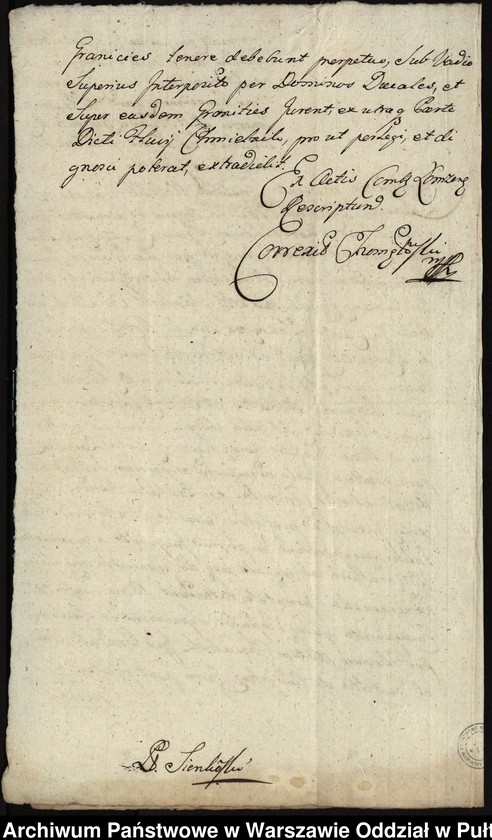 Granicies tenere debebunt perpetuo, Sub Vadio
Superius Interposito per Dominos Ducales, et
Super easdem Granities jurent, ex utraq Parte
Dicti Fluvij Chmielnik, pro ut perlegi, et di
gnosci poterat, extradidit.
Ex Actis
Descriptum
Correxit
Archiwum Państwowe w Warszawie Oddział w Puł